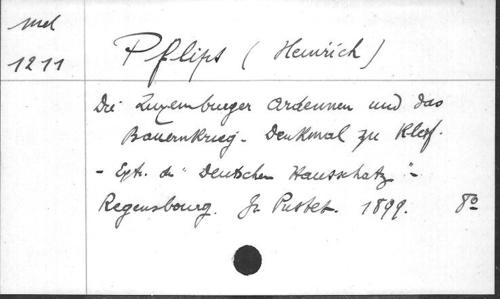 Mel
1211
Pflips (Heinrich)
Die Luxemburger Ardennen und das
Bauernkrieg-Denkmal zu Klef.
- Extr. de "Deutscher Hausschatz" -
Regensbourg. Fr. Pustet. 1899. 8º